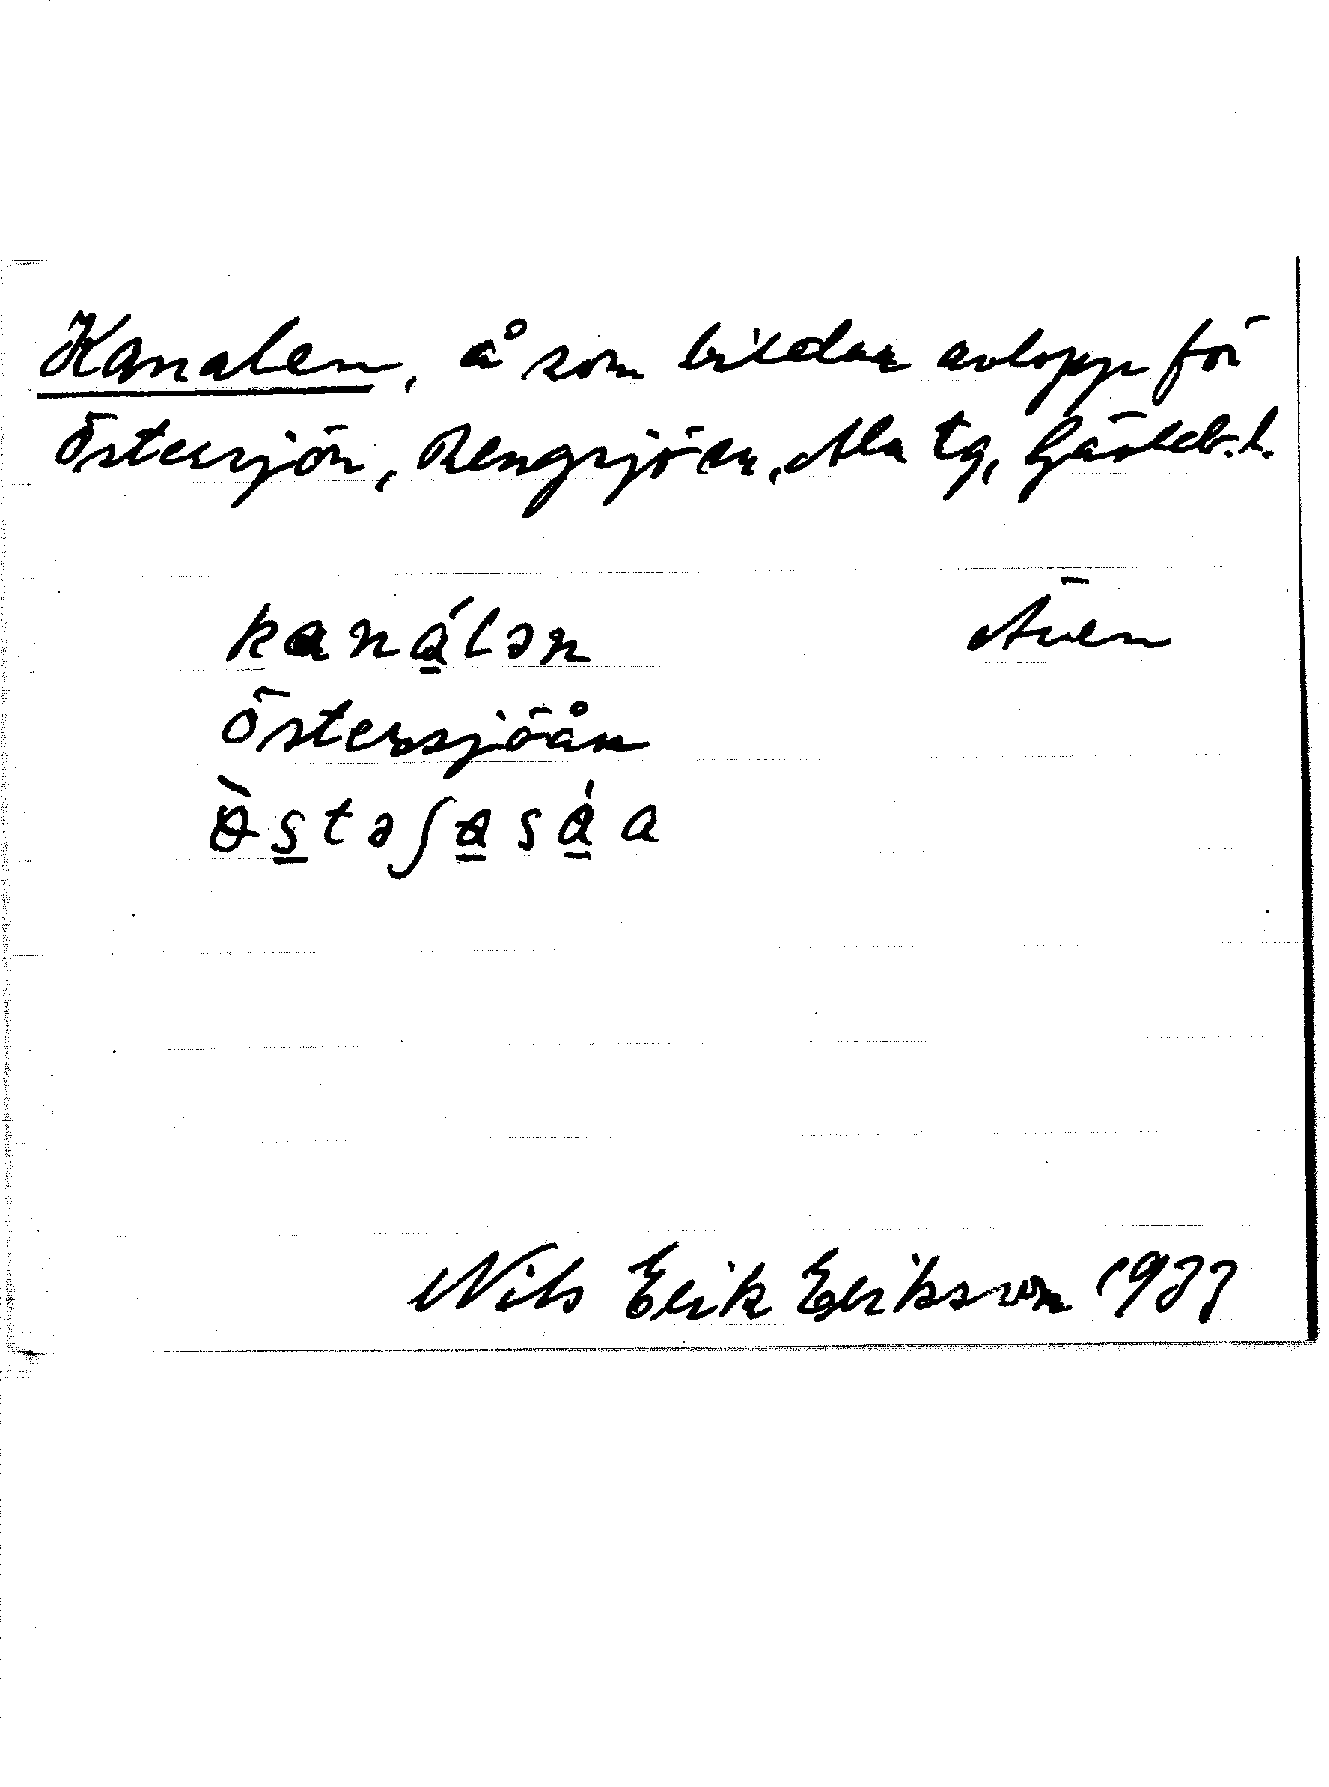 Kanalen, å som bildar avlopp för
Östersjön, Rengsjöen, Ala tg, Gävleb. l.
kanálən Även
Östersjöån
Nils Erik Eriksson 1977